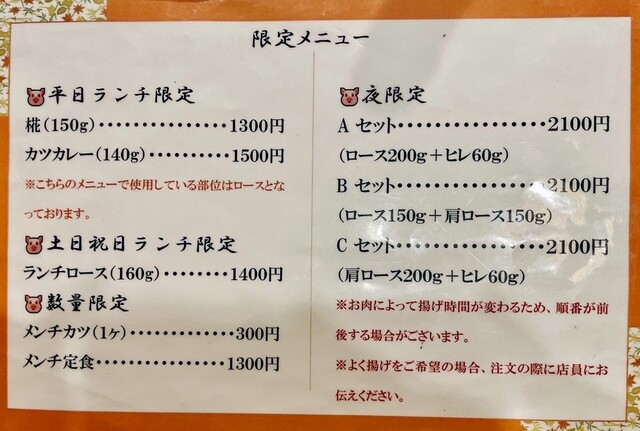 限定メニュー
平日ランチ限定
椛(150g)・・・・・・・・・・・・・・1300円
カツカレー(140g)・・・・・・・・・・・1500円
※こちらのメニューで使用している部位はロースとな
っております。
土日祝日ランチ限定
ランチロース(160g)・・・・・・・・1400円
数量限定
メンチカツ(1ヶ)・・・・・・・・・・・・・300円
メンチ定食・・・・・・・・・・・・・・・・1300円
夜限定
A セット・・・・・・・・・・・・・・・・・2100円
(ロース200g＋ヒレ60g)
B セット・・・・・・・・・・・・・・・・・2100円
(ロース150g＋肩ロース150g)
C セット・・・・・・・・・・・・・・・・・2100円
(肩ロース200g＋ヒレ60g)
※お肉によって揚げ時間が変わるため、順番が前
後する場合がございます。
※よく揚げをご希望の場合、注文の際に店員にお
伝えください。